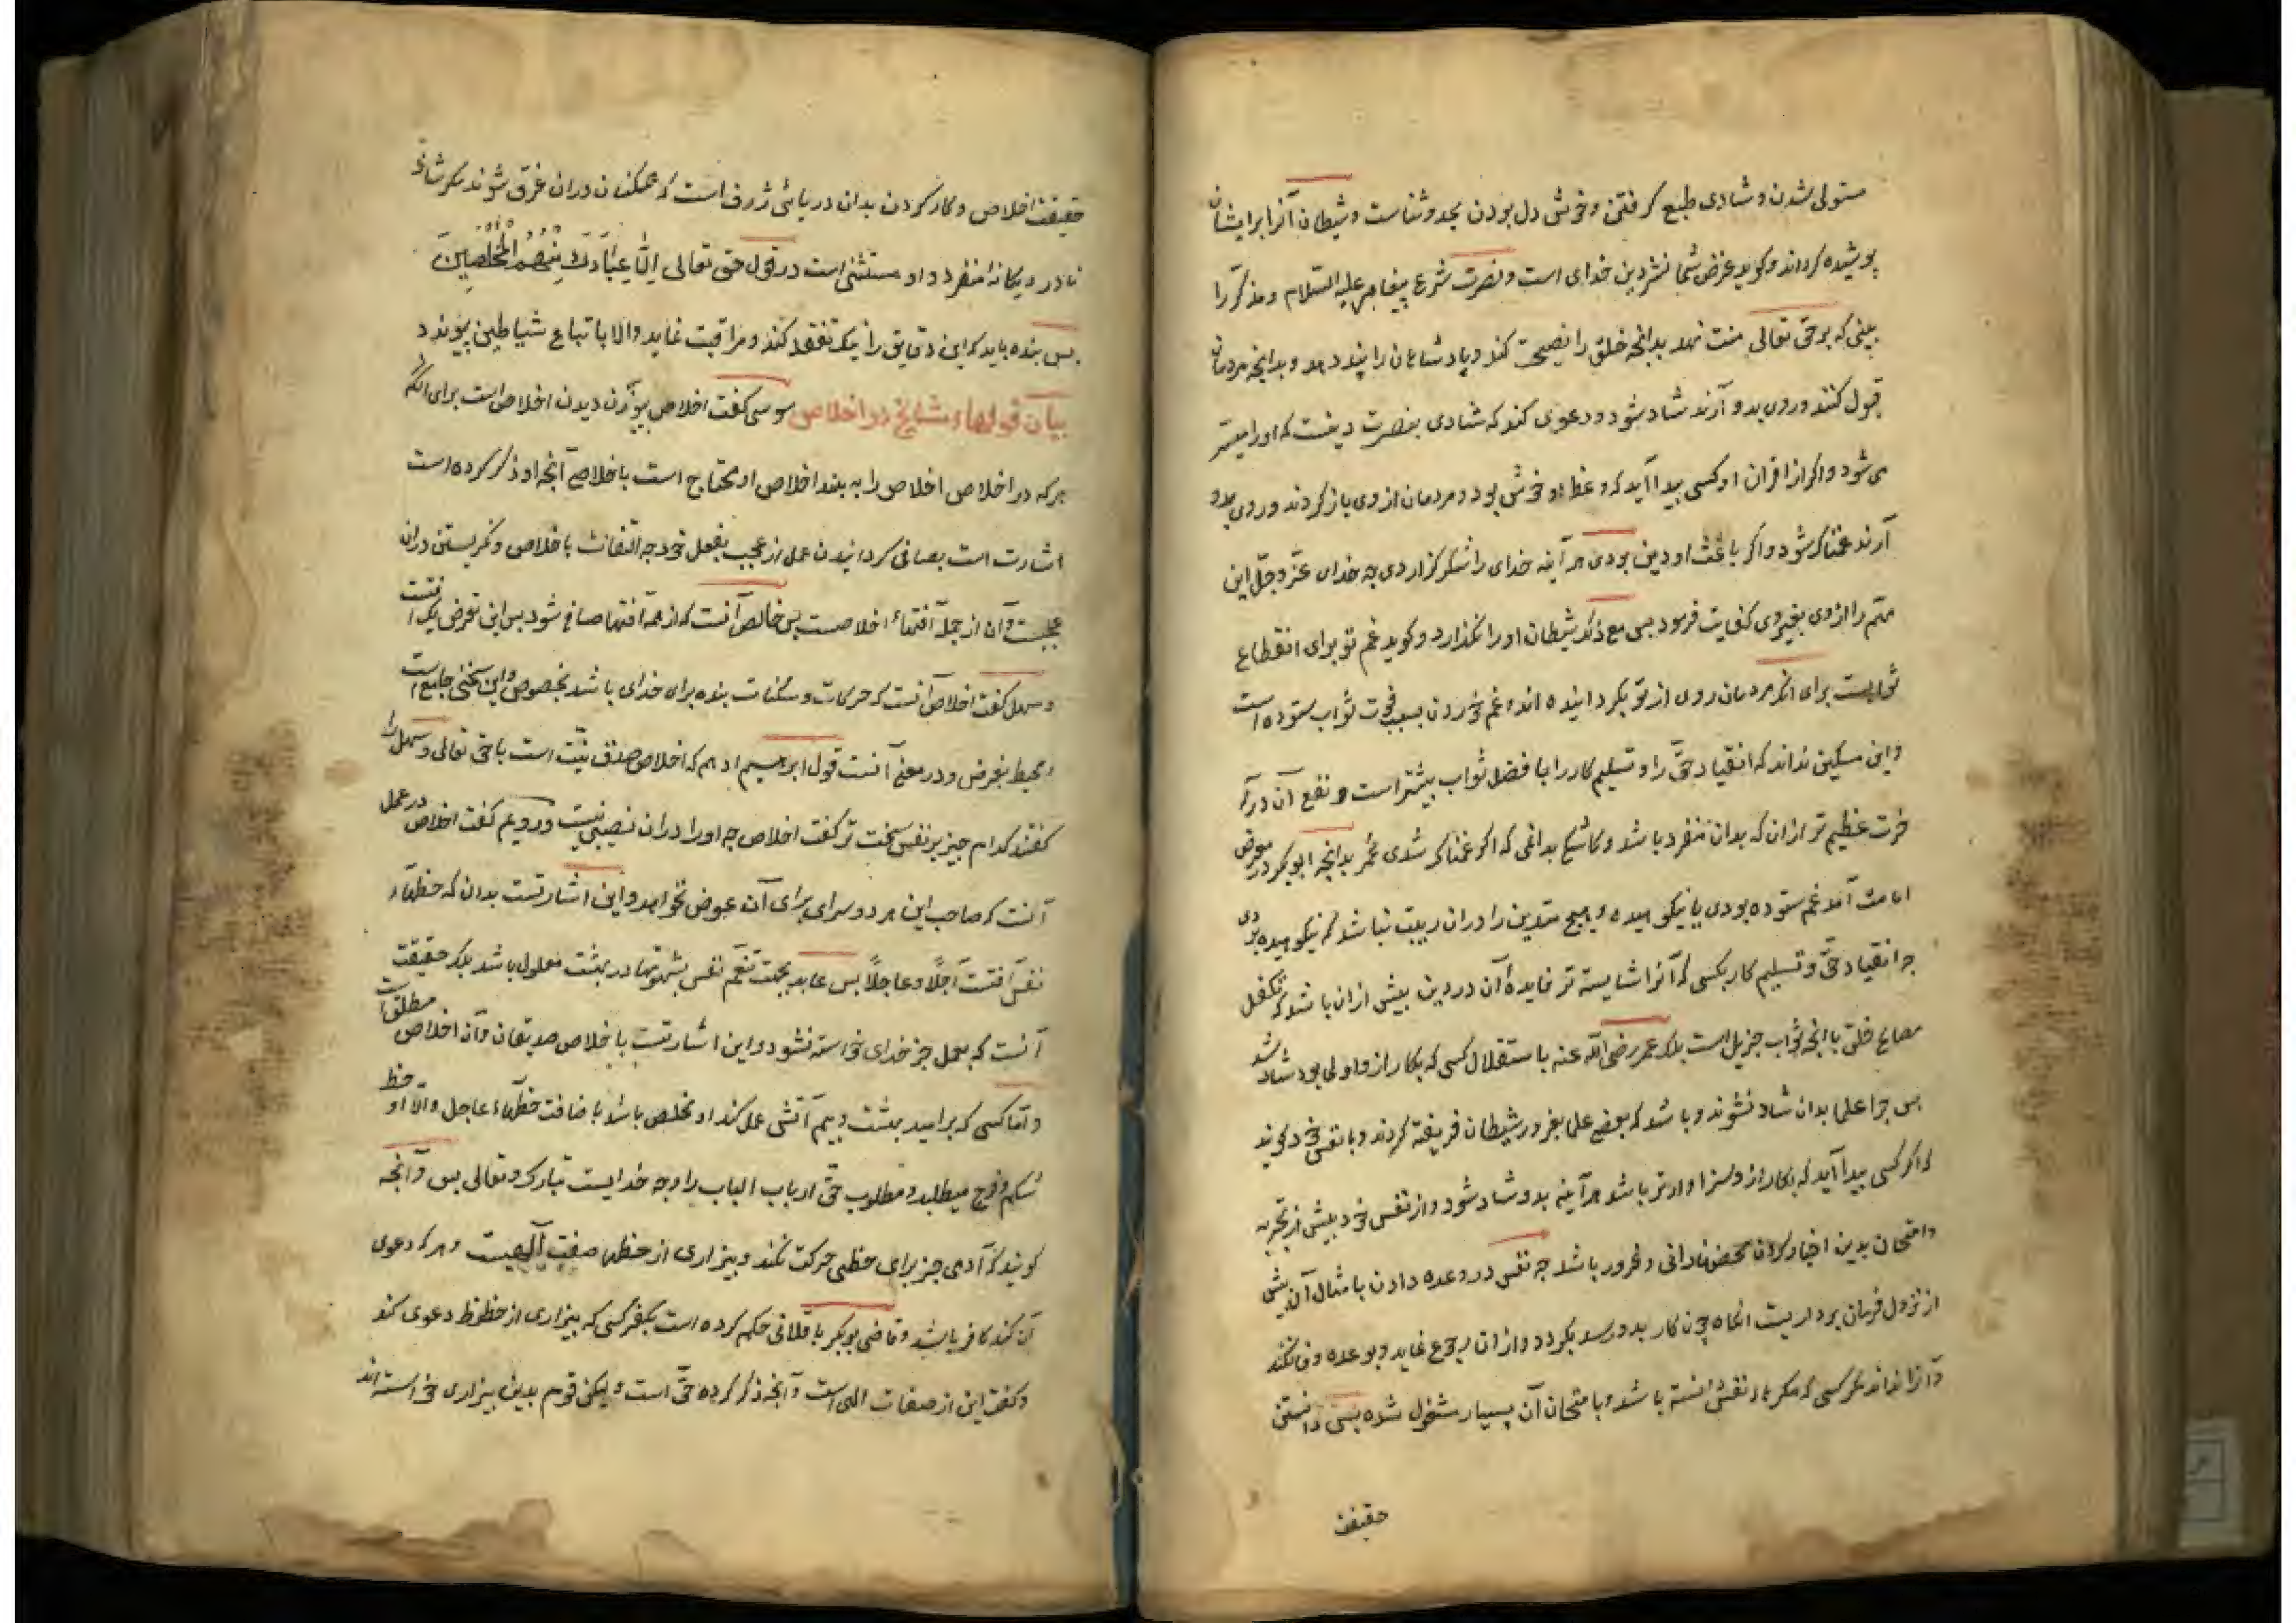 مستولی شدن و شادی طبع گرفتن و خوش دل بودن بحمد و ثناست و شیطان آنرا بر ایشان
پوشیده گرداند و گوید غرض شما نشر دین خدای است و نصرت شرع پیغامبر علیه السلام و مذکر را
بینی که بر حق تعالی منت نهد بدانچه خلق را نصیحت کند و پادشاهان را پند دهد و بدانچه مردمان
قبول کنند و روی بدو آرند شاد شود و دعوی کند که شادی بنصرت دینست که او را میسر
می شود و اگر از اقران او کسی پیدا آید که وعظ او خوش بود و مردمان از وی باز گردند و روی بدو
آرند غمناک شود و اگر باعث او دین بودی هر آینه خدای را شکر گزاردی چه خدای عز و جل این
مهم را از وی بغیر وی کفایت فرمود پس مع ذلک شیطان او را نگذارد و گوید غم تو برای انقطاع
ثوابست برای آنکه مردمان روی از تو بگردانیده اند و غم خوردن بسبب فوت ثواب ستوده است
و این مسکین نداند که انقیاد حق را و تسلیم کار را با فضل ثواب بیشتر است و نفع آن در آ
خرت عظیم تر از ان که بدان منفرد باشد و کاشکی بدانمی که اگر غمناک شدی عمر بدانچه ابوبکر در معرض
امامت آمد غم ستوده بودی یا نیکوهیده و هیچ متدین را دران ریبت نباشد که نیکوهیده بودی
چه انقیاد حق و تسلیم کار بکسی که آنرا شایسته تر فایده آن در دین بیش ازان باشد که تکفل
مصالح خلق با آنچه ثواب جزیل است بلکه عمر رضی الله عنه باستقلال کسی که بکار ازو اولی بود شاد شد
پس چرا علما بدان شاد نشوند و باشد که بعضی علما بغرور شیطان فریفته گردند و با نفس خود گویند
که اگر کسی پیدا آید که بکار ازو سزاوارتر باشد هر آینه بدو شاد شود و از نفس خود پیش از تجربه
و امتحان بدین اخبار کردن محض نادانی و غرور باشد چه نفس در وعده دادن بامثال آن پیش
از نزول فرمان بردار یست انگاه چون کار بدو رسد بگردد و ازان رجوع نماید و بوعده وفا نکند
و آنرا نداند مگر کسی که مکرهاء نفس دانسته باشد و بامتحان آن بسیار مشغول شده پس دانستن
حقیقت
حقیقت اخلاص و کار کردن بدان دریائی ژرف است که همکنان دران غرق شوند مگر شاذی
نادر و یگانه منفرد و او مستثنی است در قول حق تعالی اِلَّا عِبَادَكَ مِنْهُمُ الْمُخْلَصِينَ
پس بنده باید که این دقایق را نیک تفقد کند و مراقبت نماید و الا باتباع شیاطین پیوندد
بیان قولهاء مشایخ در اخلاص سوسی گفت اخلاص بیوزن دیدن اخلاص است برای آنکه
هر که در اخلاص اخلاص را به بیند اخلاص او محتاج است باخلاص آنچه او ذکر کرده است
اشارت است بصافی گردانیدن عمل از عجب بفعل خود چه التفات باخلاص و نگریستن دران
عجبست و آن از جمله آفتهاء اخلاصست پس خالص آنست که از همه آفتها صافی شود پس این تعرض یک آفتست
و سهل گفت اخلاص آنست که حرکات و سکنات بنده برای خدای باشد بخصوص و این سخنی جامع است
و محیط بغرض و در معنی آنست قول ابرهیم ادهم که اخلاص صدق نیت است با حق تعالی و سهل را
گفتند کدام چیز بر نفس سخت تر گفت اخلاص چه او را دران نصیبی نیست و رویم گفت اخلاص در عمل
آنست که صاحب این هر دو سرای برای آن عوض نخواهد و این اشارتست بدان که حظهاء
نفس آفتست آجلا و عاجلا پس عابد بجهت تنعم نفس بشهوتها در بهشت معلول باشد بلکه حقیقت
آنست که بعمل جز خدای خواسته نشود و این اشارتست باخلاص صدیقان و آن اخلاص مطلق است
و اما کسی که بر امید بهشت و بیم آتش عمل کند او مخلص باشد باضافت حظهاء عاجل و الا او حظ
شکم و فرج میطلبد و مطلوب حق ارباب الباب را وجه خدایست تبارک و تعالی بس و آنچه
گویند که آدمی جز برای حظی حرکت نکند و بیزاری از حظها صفت آلهیت و هر که دعوی
آن کند کافر باشد و قاضی بوبکر باقلانی حکم کرده است بکفر کسی که بیزاری از حظوظ دعوی کند
و گفت این از صفات الهی است و آنچه ذکر کرده حق است و لیکن قوم بدین بیزاری خواسته اند